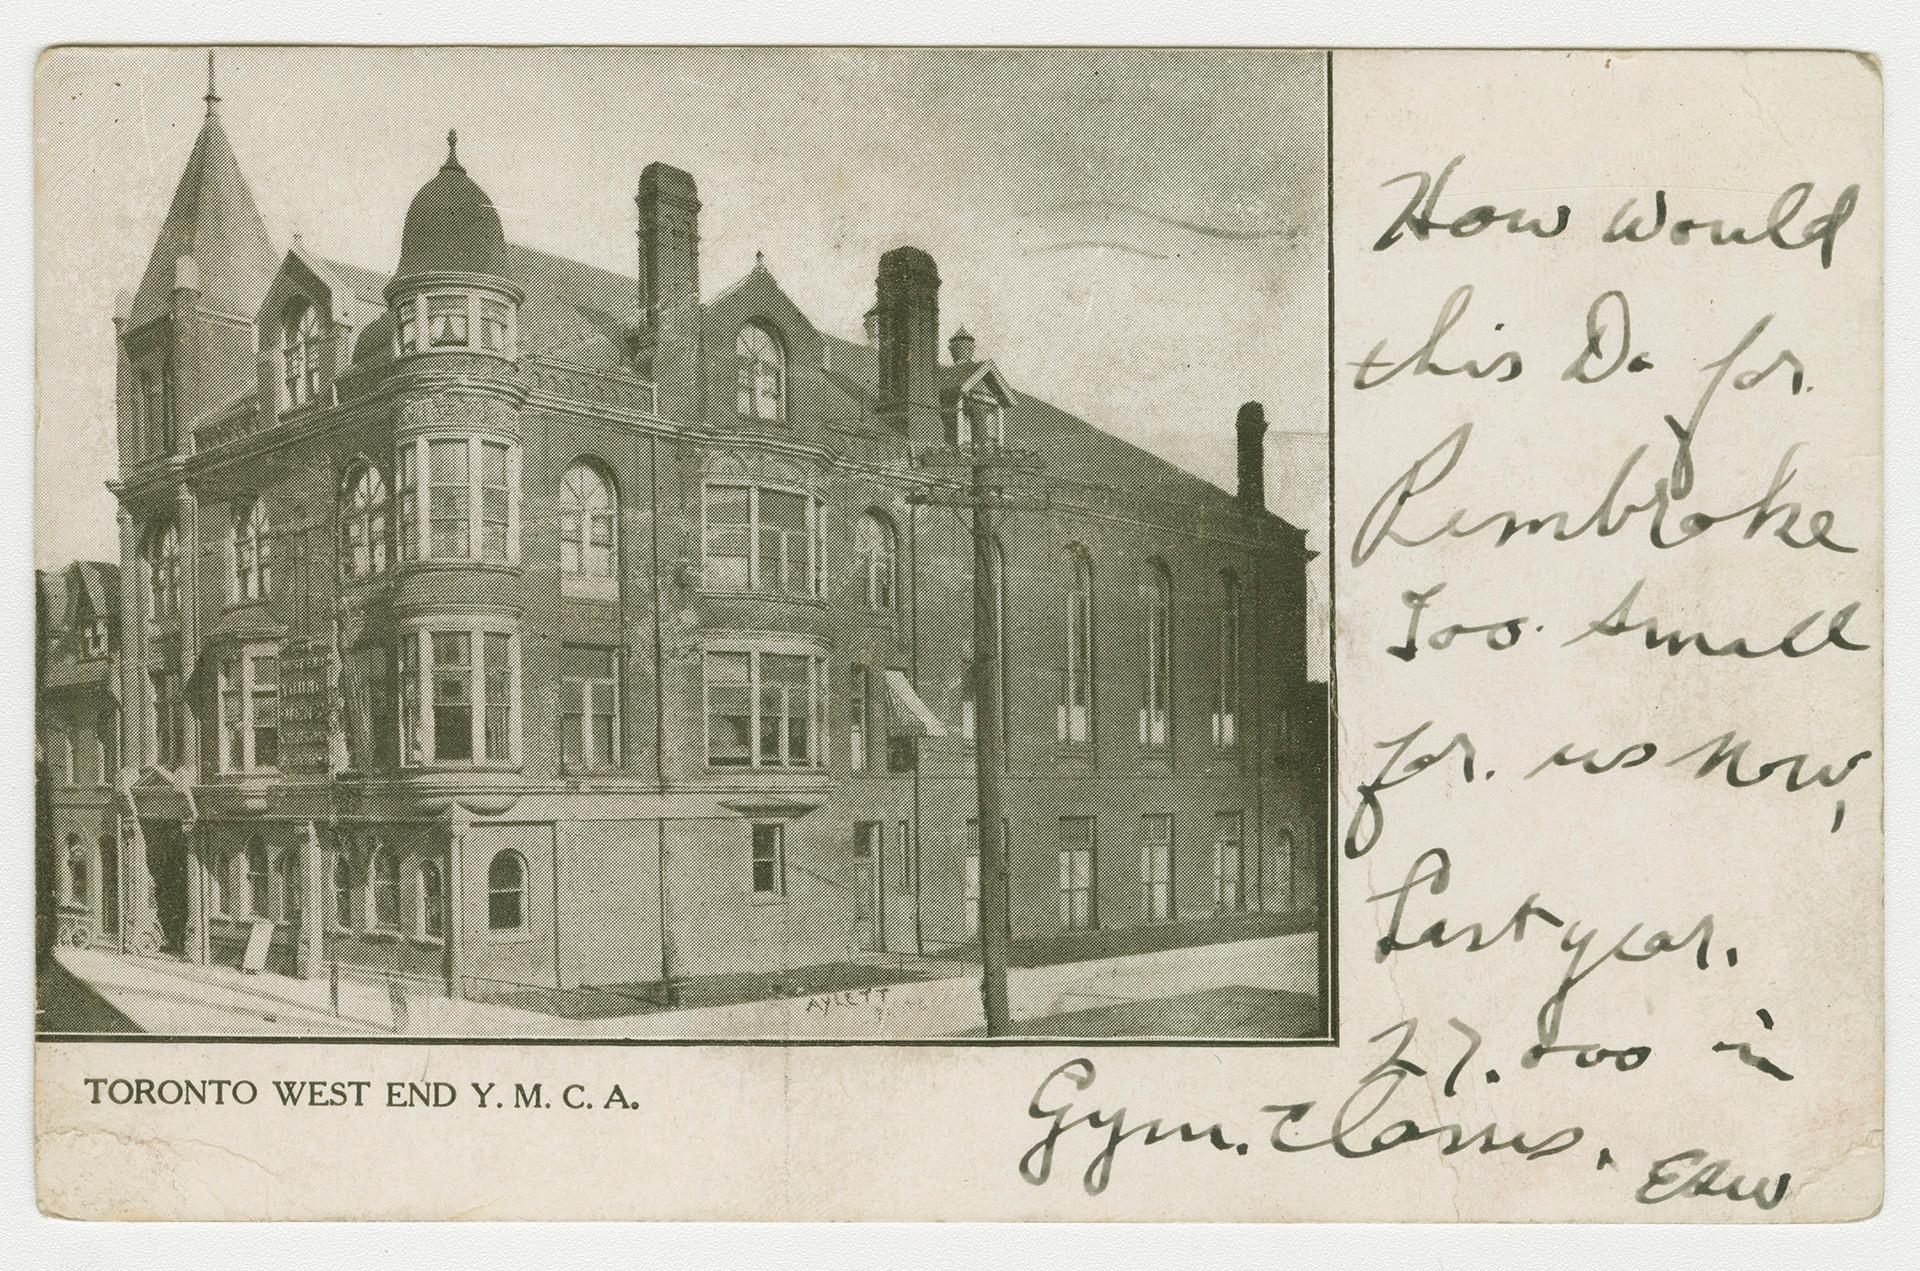 How would
this Do for.
Pembroke
Too. Small
for. us now,
Last year.
27.000 in
Gym. Classes.
AYLETT
TORONTO WEST END Y. M. C. A.